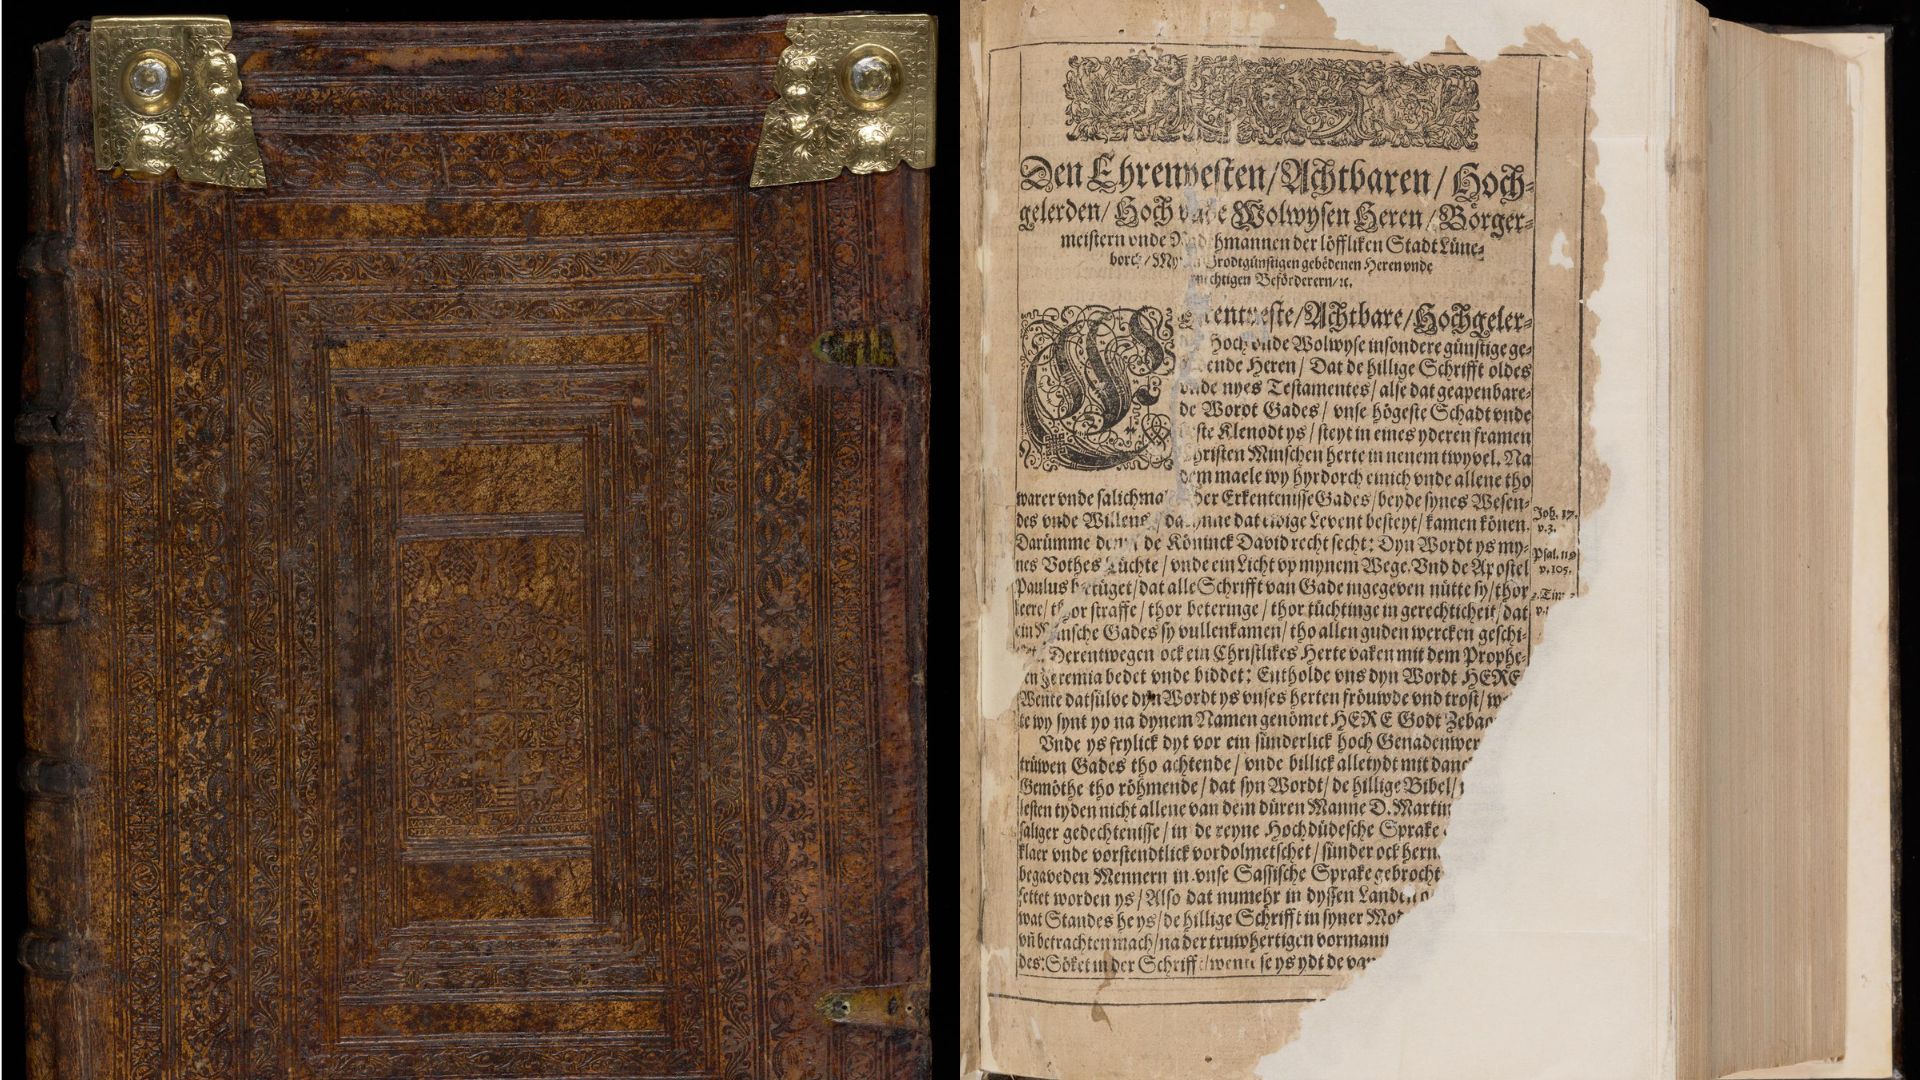 Den Ehrenvesten/Achtbaren/Hoch-
gelerden/Hoch vnde Wolwysen Heren/Börger-
meistern vnde hmannen der löffliken Stadt Lüne-
borch/My rodtgünstigen gebëdenen Heren vnde
chtigen Beförderern/ꝛc.
Erentveste/Achtbare/Hochgeler-
Hoch vnde Wolwyse insondere günstige ge-
ende Heren/ Dat de hillige Schrifft oldes
vnde nyes Testamentes/alse dat geapenbare-
de Wordt Gades/ vnse högeste Schadt vnde
ste Klenodt ys/steyt in eines yderen framen
Christen Minschen herte in nenem twyvel. Na
dem maele wy hyrdorch einich vnde allene tho
warer vnde salichma der Erkentenisse Gades/beyde synes Wesen-
des vnde Willens/darynne dat ewige Levent besteyt/kamen könen.
Darümme de Köninck David recht secht: Dyn Wordt ys my-
nes Vothes Lüchte/vnde ein Licht vp mynem Wege. Vnd de Apostel
Paulus betüget/dat alle Schrifft van Gade ingegeven nütte sy/thor
leere/thor straffe/thor beteringe/thor tüchtinge in gerechticheit/dat
ein Minsche Gades sy vullenkamen/tho allen guden wercken geschi-
Derentwegen ock ein Christlikes Herte vaken mit dem Prophe-
en Jeremia bedet vnde biddet: Entholde vns dyn Wordt HERE
Wente datsülve dyn Wordt ys vnses herten fröuwde vnd trost/
te wy synt yo na dynem Namen genömet HERE Godt Zebao
Vnde ys frylick dyt vor ein sünderlick hoch Genadenwer
trüwen Gades tho achtende/vnde billick alletydt mit danc
Gemöthe tho röhmende/dat syn Wordt/de hillige Bibel/
lesten tyden nicht allene van dem düren Manne D. Martin
saliger gedechtenisse/in de reyne Hochdüdesche Sprake
klaer vnde vorstendtlick vordolmetschet/sünder ock hern
begaveden Mennern in vnse Sassische Sprake gebrocht
settet worden ys/Also dat numehr in dyssen Landen
wat Standes he ys/de hillige Schrifft in syner Mo
vn̄ betrachten mach/na der truwhertigen vorman
des: Söket in der Schrifft/wente se ys ydt de van
Joh. 17.
v.3.
Psal. 119
v.105.
2. Tim.